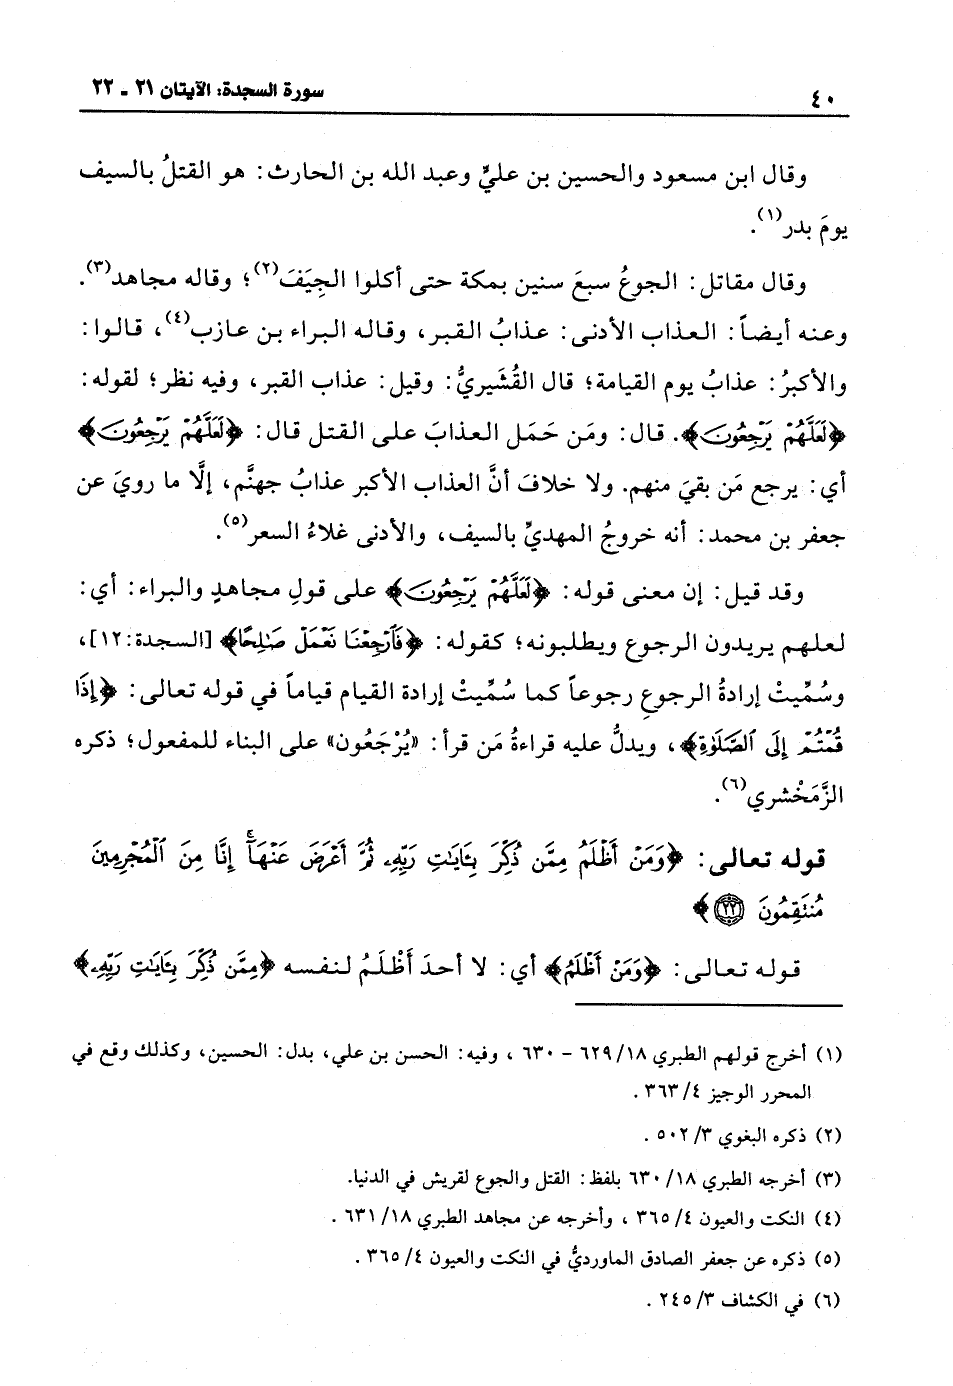 ٤٠
سورة السجدة: الآيتان ٢١ - ٢٢
وقال ابن مسعود والحسين بن عليٍّ وعبد الله بن الحارث: هو القتلُ بالسيف
يومَ بدر(١).
وقال مقاتل: الجوعُ سبعَ سنين بمكة حتى أكلوا الجِيَفَ(٢)؛ وقاله مجاهد(٣).
وعنه أيضاً: العذاب الأدنى: عذابُ القبر، وقاله البراء بن عازب(٤)، قالوا:
والأكبرُ: عذابُ يوم القيامة؛ قال القُشَيريُّ: وقيل: عذاب القبر، وفيه نظر؛ لقوله:
﴿لَعَلَّهُمْ يَرْجِعُونَ﴾. قال: ومَن حَمَل العذابَ على القتل قال: ﴿لَعَلَّهُمْ يَرْجِعُونَ﴾
أي: يرجع مَن بقيَ منهم. ولا خلافَ أنَّ العذاب الأكبر عذابُ جهنَّم، إلَّا ما رويَ عن
جعفر بن محمد: أنه خروجُ المهديِّ بالسيف، والأدنى غلاءُ السعر(٥).
وقد قيل: إن معنى قوله: ﴿لَعَلَّهُمْ يَرْجِعُونَ﴾ على قولِ مجاهدٍ والبراء: أي:
لعلهم يريدون الرجوع ويطلبونه؛ كقوله: ﴿فَٱرْجِعْنَا نَعْمَلْ صَٰلِحًا﴾ [السجدة: ١٢]،
وسُمِّيتْ إرادةُ الرجوعِ رجوعاً كما سُمِّيتْ إرادة القيام قياماً في قوله تعالى: ﴿إِذَا
قُمْتُمْ إِلَى ٱلصَّلَوٰةِ﴾، ويدلُّ عليه قراءةُ مَن قرأ: «يُرْجَعُون» على البناء للمفعول؛ ذكره
الزَّمَخْشري(٦).
قوله تعالى: ﴿وَمَنْ أَظْلَمُ مِمَّن ذُكِّرَ بِـَٔايَٰتِ رَبِّهِۦ ثُمَّ أَعْرَضَ عَنْهَآ ۚ إِنَّا مِنَ ٱلْمُجْرِمِينَ
مُنتَقِمُونَ ٢٢﴾
قوله تعالى: ﴿وَمَنْ أَظْلَمُ﴾ أي: لا أحدَ أَظْلَمُ لنفسه ﴿مِمَّن ذُكِّرَ بِـَٔايَٰتِ رَبِّهِۦ﴾
(١) أخرج قولهم الطبري ١٨/ ٦٢٩ - ٦٣٠ ، وفيه: الحسن بن علي، بدل: الحسين، وكذلك وقع في
المحرر الوجيز ٤/ ٣٦٣ .
(٢) ذكره البغوي ٣/ ٥٠٢ .
(٣) أخرجه الطبري ١٨/ ٦٣٠ بلفظ: القتل والجوع لقريش في الدنيا.
(٤) النكت والعيون ٤/ ٣٦٥ ، وأخرجه عن مجاهد الطبري ١٨/ ٦٣١ .
(٥) ذكره عن جعفر الصادق الماورديُّ في النكت والعيون ٤/ ٣٦٥ .
(٦) في الكشاف ٣/ ٢٤٥ .